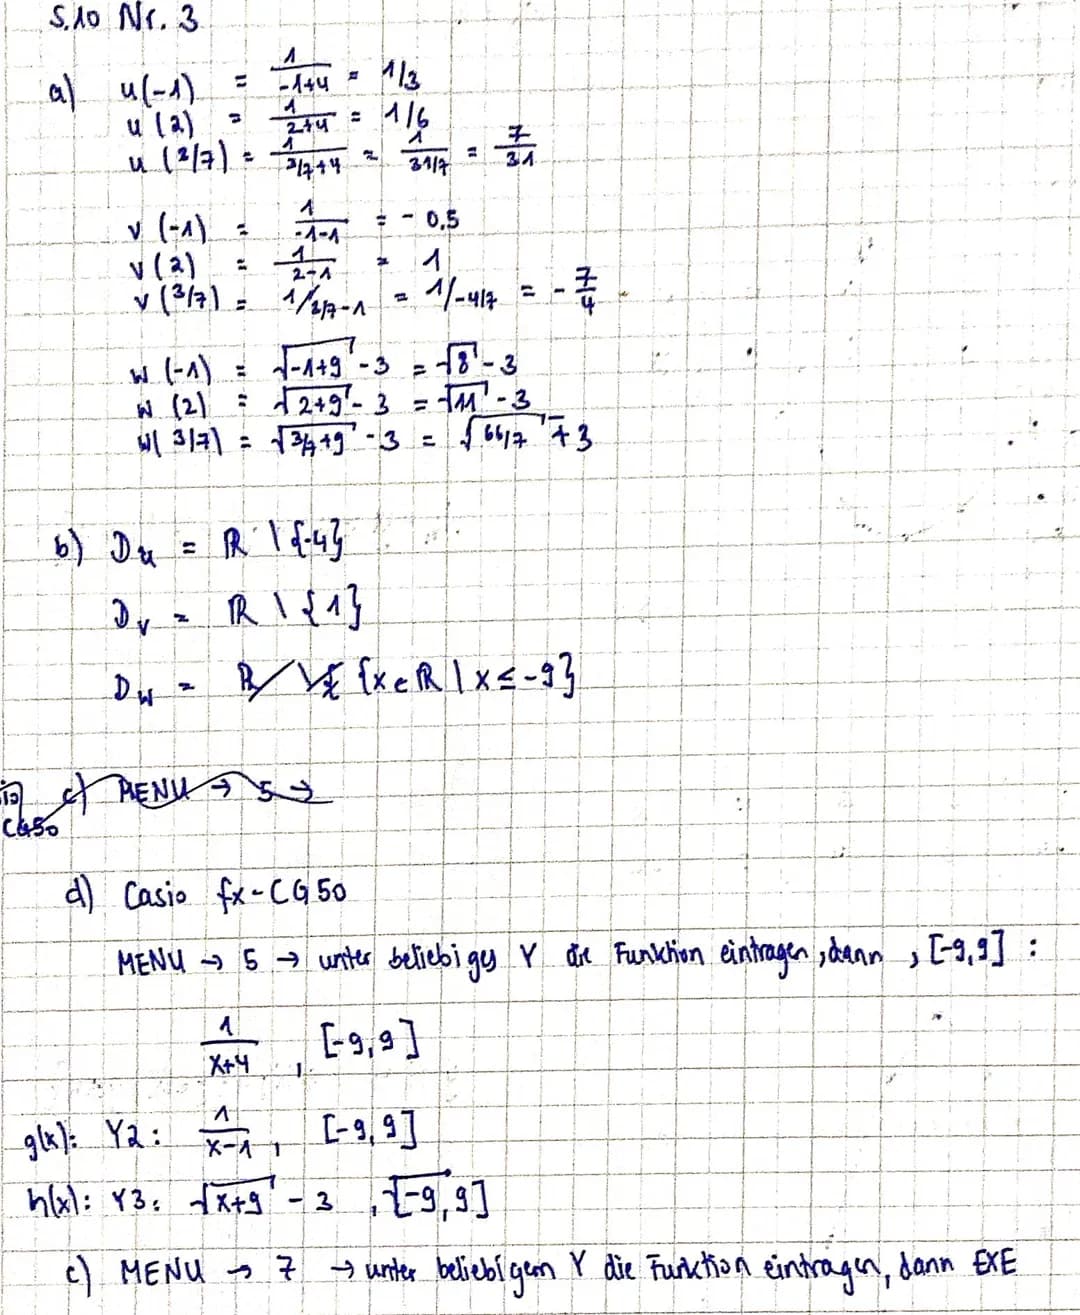 S.10 Nr. 3
a) u(-1) = 1/(-1+4) = 1/3
u(2) = 1/(2+4) = 1/6
u(3/7) = 1/(3/7+4) = 1/(31/7) = 7/31
v(-1) = 1/(-1-1) = -0,5
v(2) = 1/(2-1) = 1
v(3/7) = 1/(3/7-1) = 1/(-4/7) = -7/4
w(-1) = √(-1+9) - 3 = √8 - 3
w(2) = √(2+9) - 3 = √11 - 3
w(3/7) = √(3/7+9) - 3 = √(66/7) - 3
b) Du = ℝ \ {-4}
Dv = ℝ \ {1}
Dw = ℝ \ {x∈ℝ | x ≤ -9}
c) MENU → 5 →
CG50
d) Casio fx-CG50
MENU → 5 → unter beliebiges Y die Funktion eintragen, dann , [-9,9] :
1/(x+4) , [-9,9]
g(x): Y2: 1/(x-1) , [-9,9]
h(x): Y3: √(x+9) - 3 , [-9,9]
c) MENU → 7 → unter beliebigem Y die Funktion eintragen, dann EXE